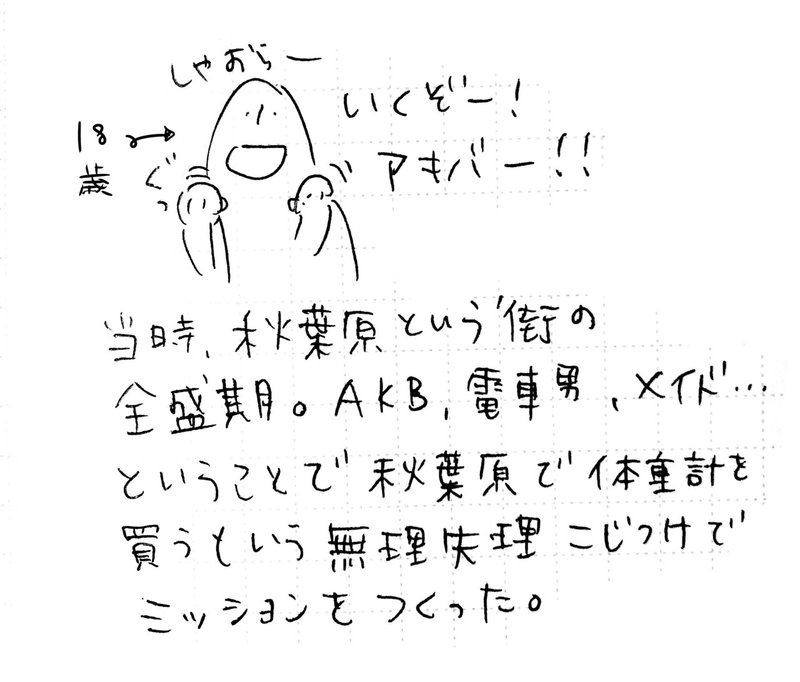 しゃおらー
いくぞー!
アキバー!!
18
歳
ぐっ
当時、秋葉原という街の
全盛期。AKB、電車男、メイド…
ということで秋葉原で体重計を
買うという無理失理こじつけで
ミッションをつくった。